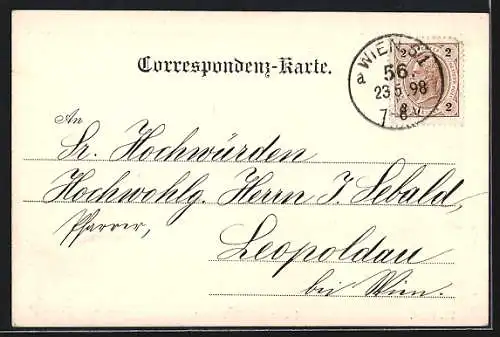 Correspondenz-Karte.
a WIEN 5/1
56
23 5 98
7-8 V
2 2
2 2
An
Sr. Hochwürden
Hochwohlg. Herrn J. Sebald,
Pfarrer,
Leopoldau
bei Wien.